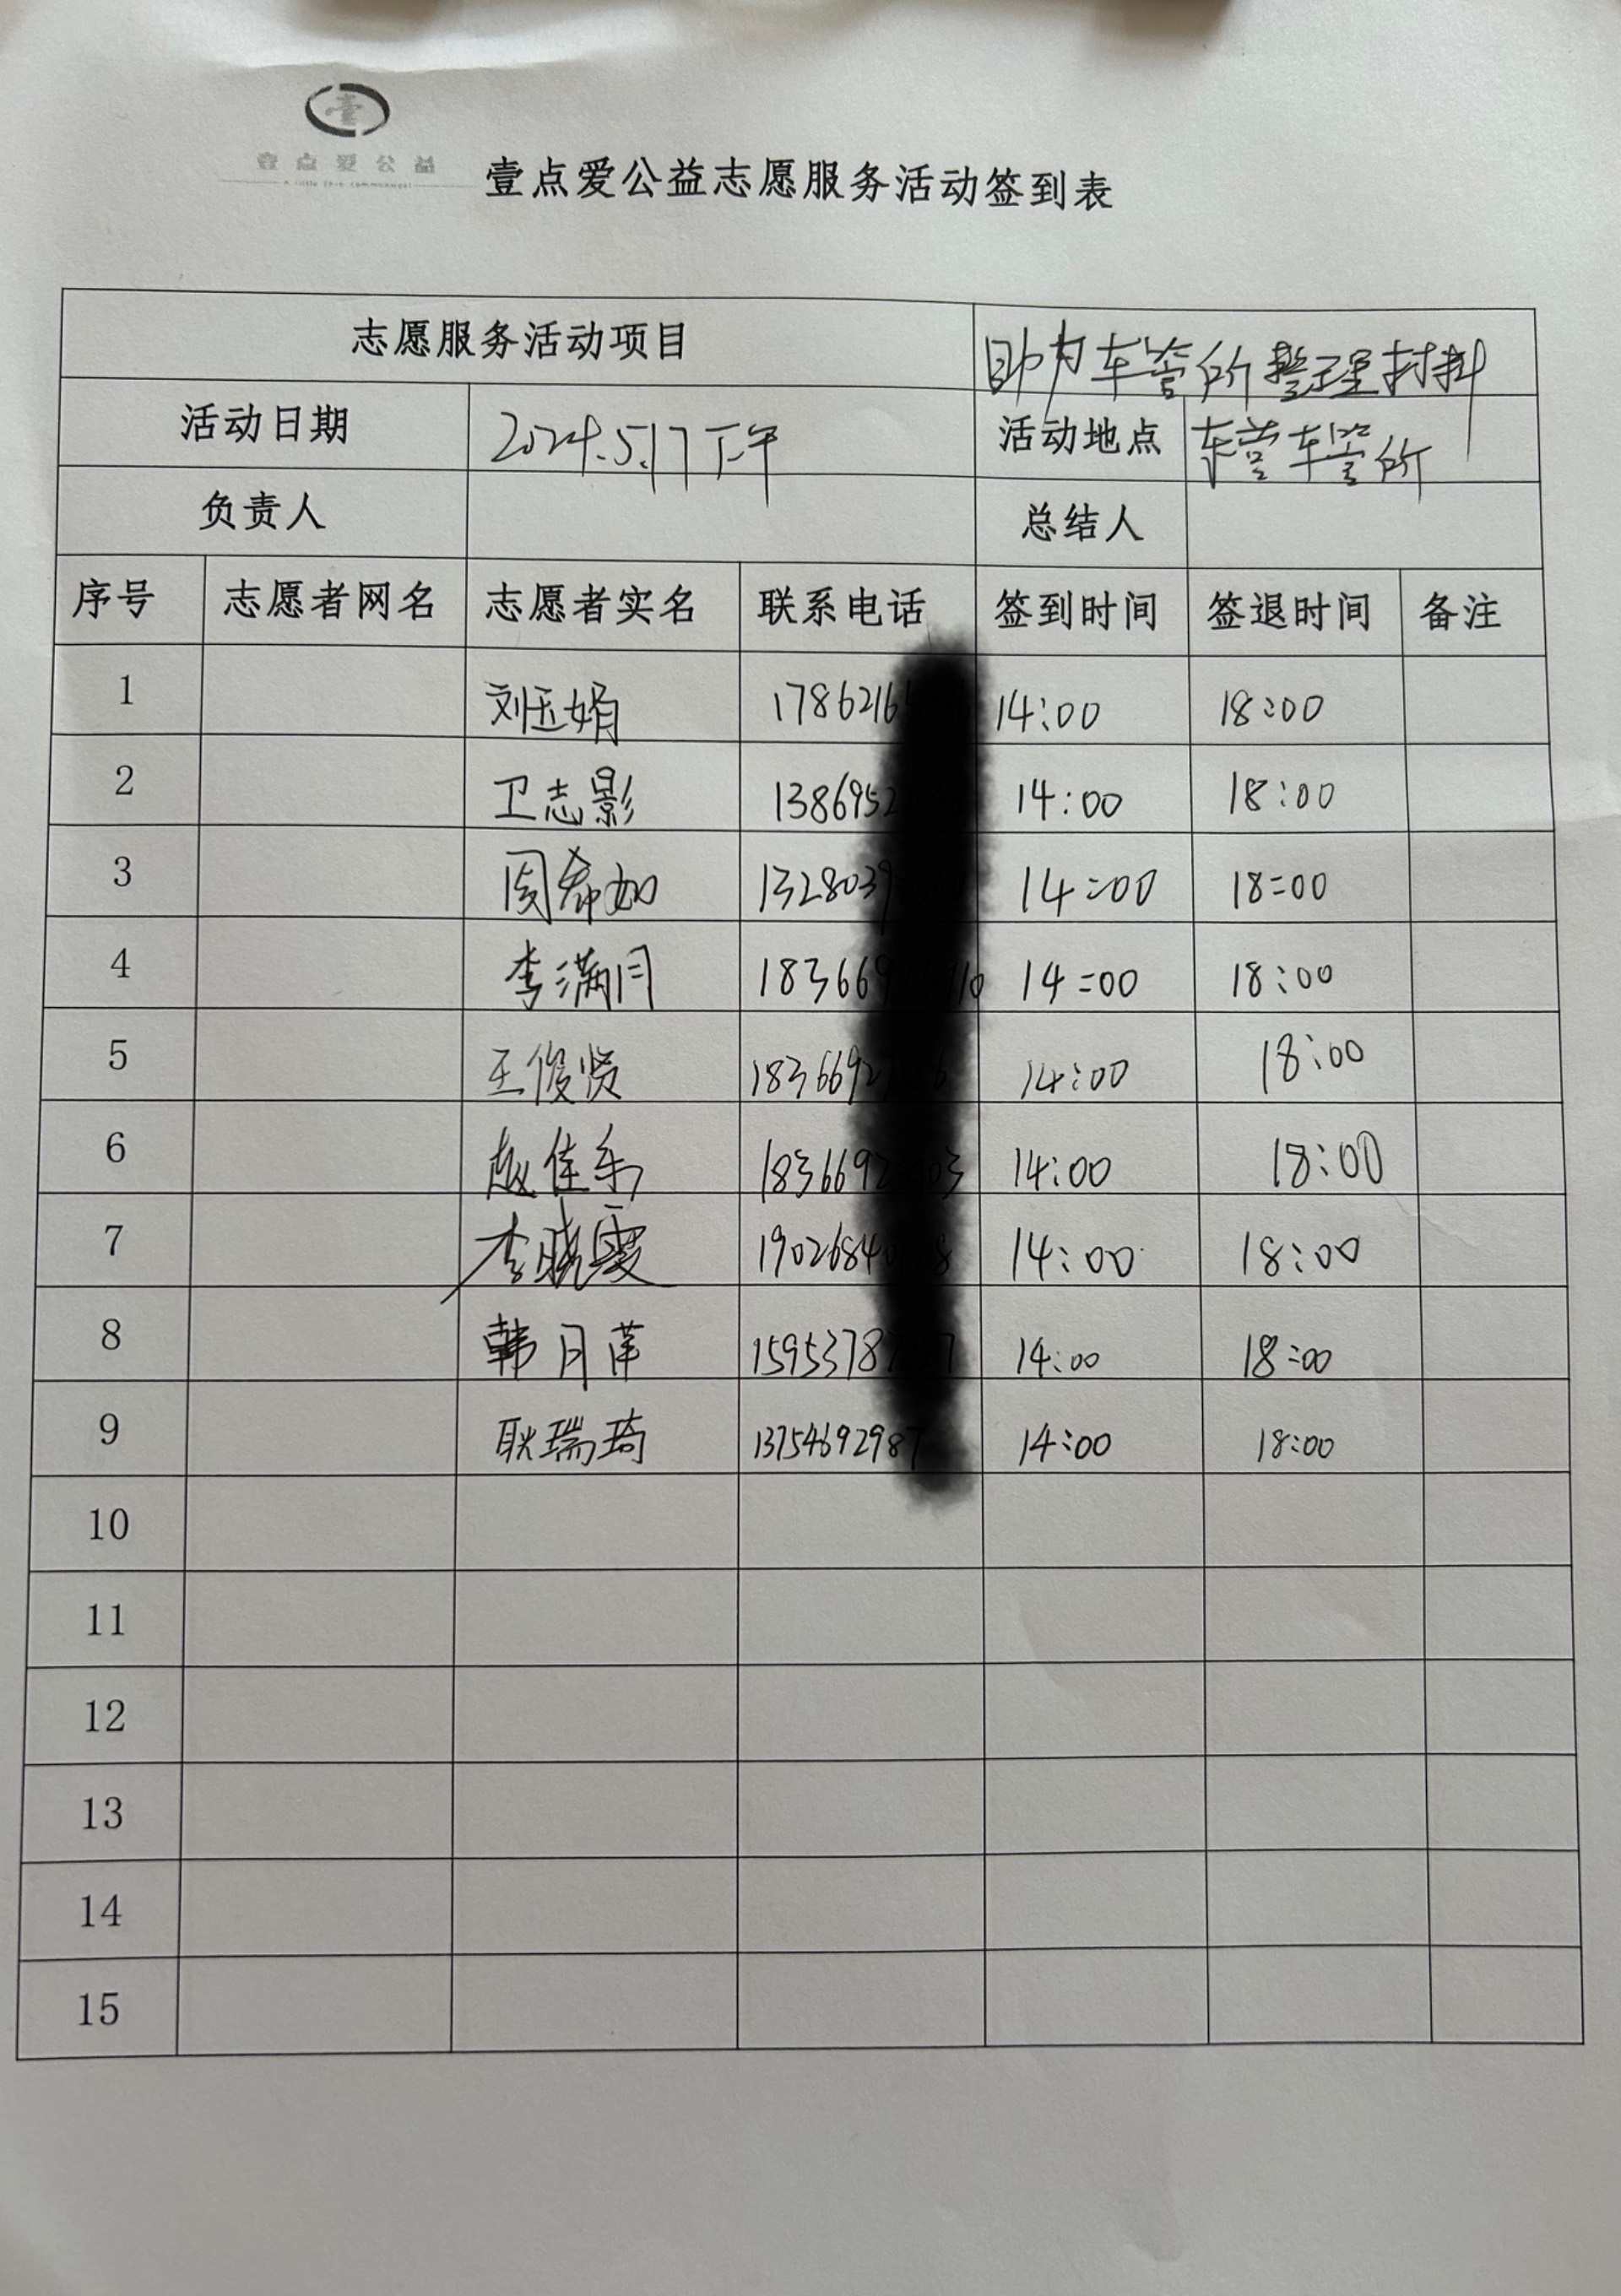 壹点爱公益
壹点爱公益志愿服务活动签到表
志愿服务活动项目 助力车管所整理材料
活动日期 2024.5.17下午 活动地点 东营车管所
负责人 总结人
序号 志愿者网名 志愿者实名 联系电话 签到时间 签退时间 备注
1 刘玉娟 1786216 14:00 18:00
2 卫志影 1386952 14:00 18:00
3 周希如 1328039 14:00 18:00
4 李满月 183669 10 14:00 18:00
5 王俊贤 1836692 6 14:00 18:00
6 赵佳乐 1836692 03 14:00 18:00
7 李晓雯 1902684 8 14:00 18:00
8 韩月苹 1595378 7 14:00 18:00
9 耿瑞琦 1375469298 14:00 18:00
10
11
12
13
14
15